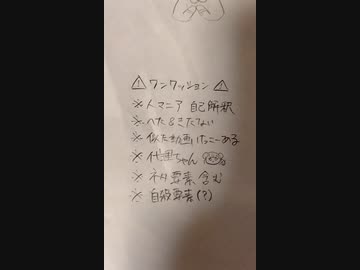 ⚠ワンクッション⚠
※人マニア 自己解釈
※へた&きたない
※似た動画けっこーある
※代理ちゃん
※ネタ要素 含む
※自殺要素(?)